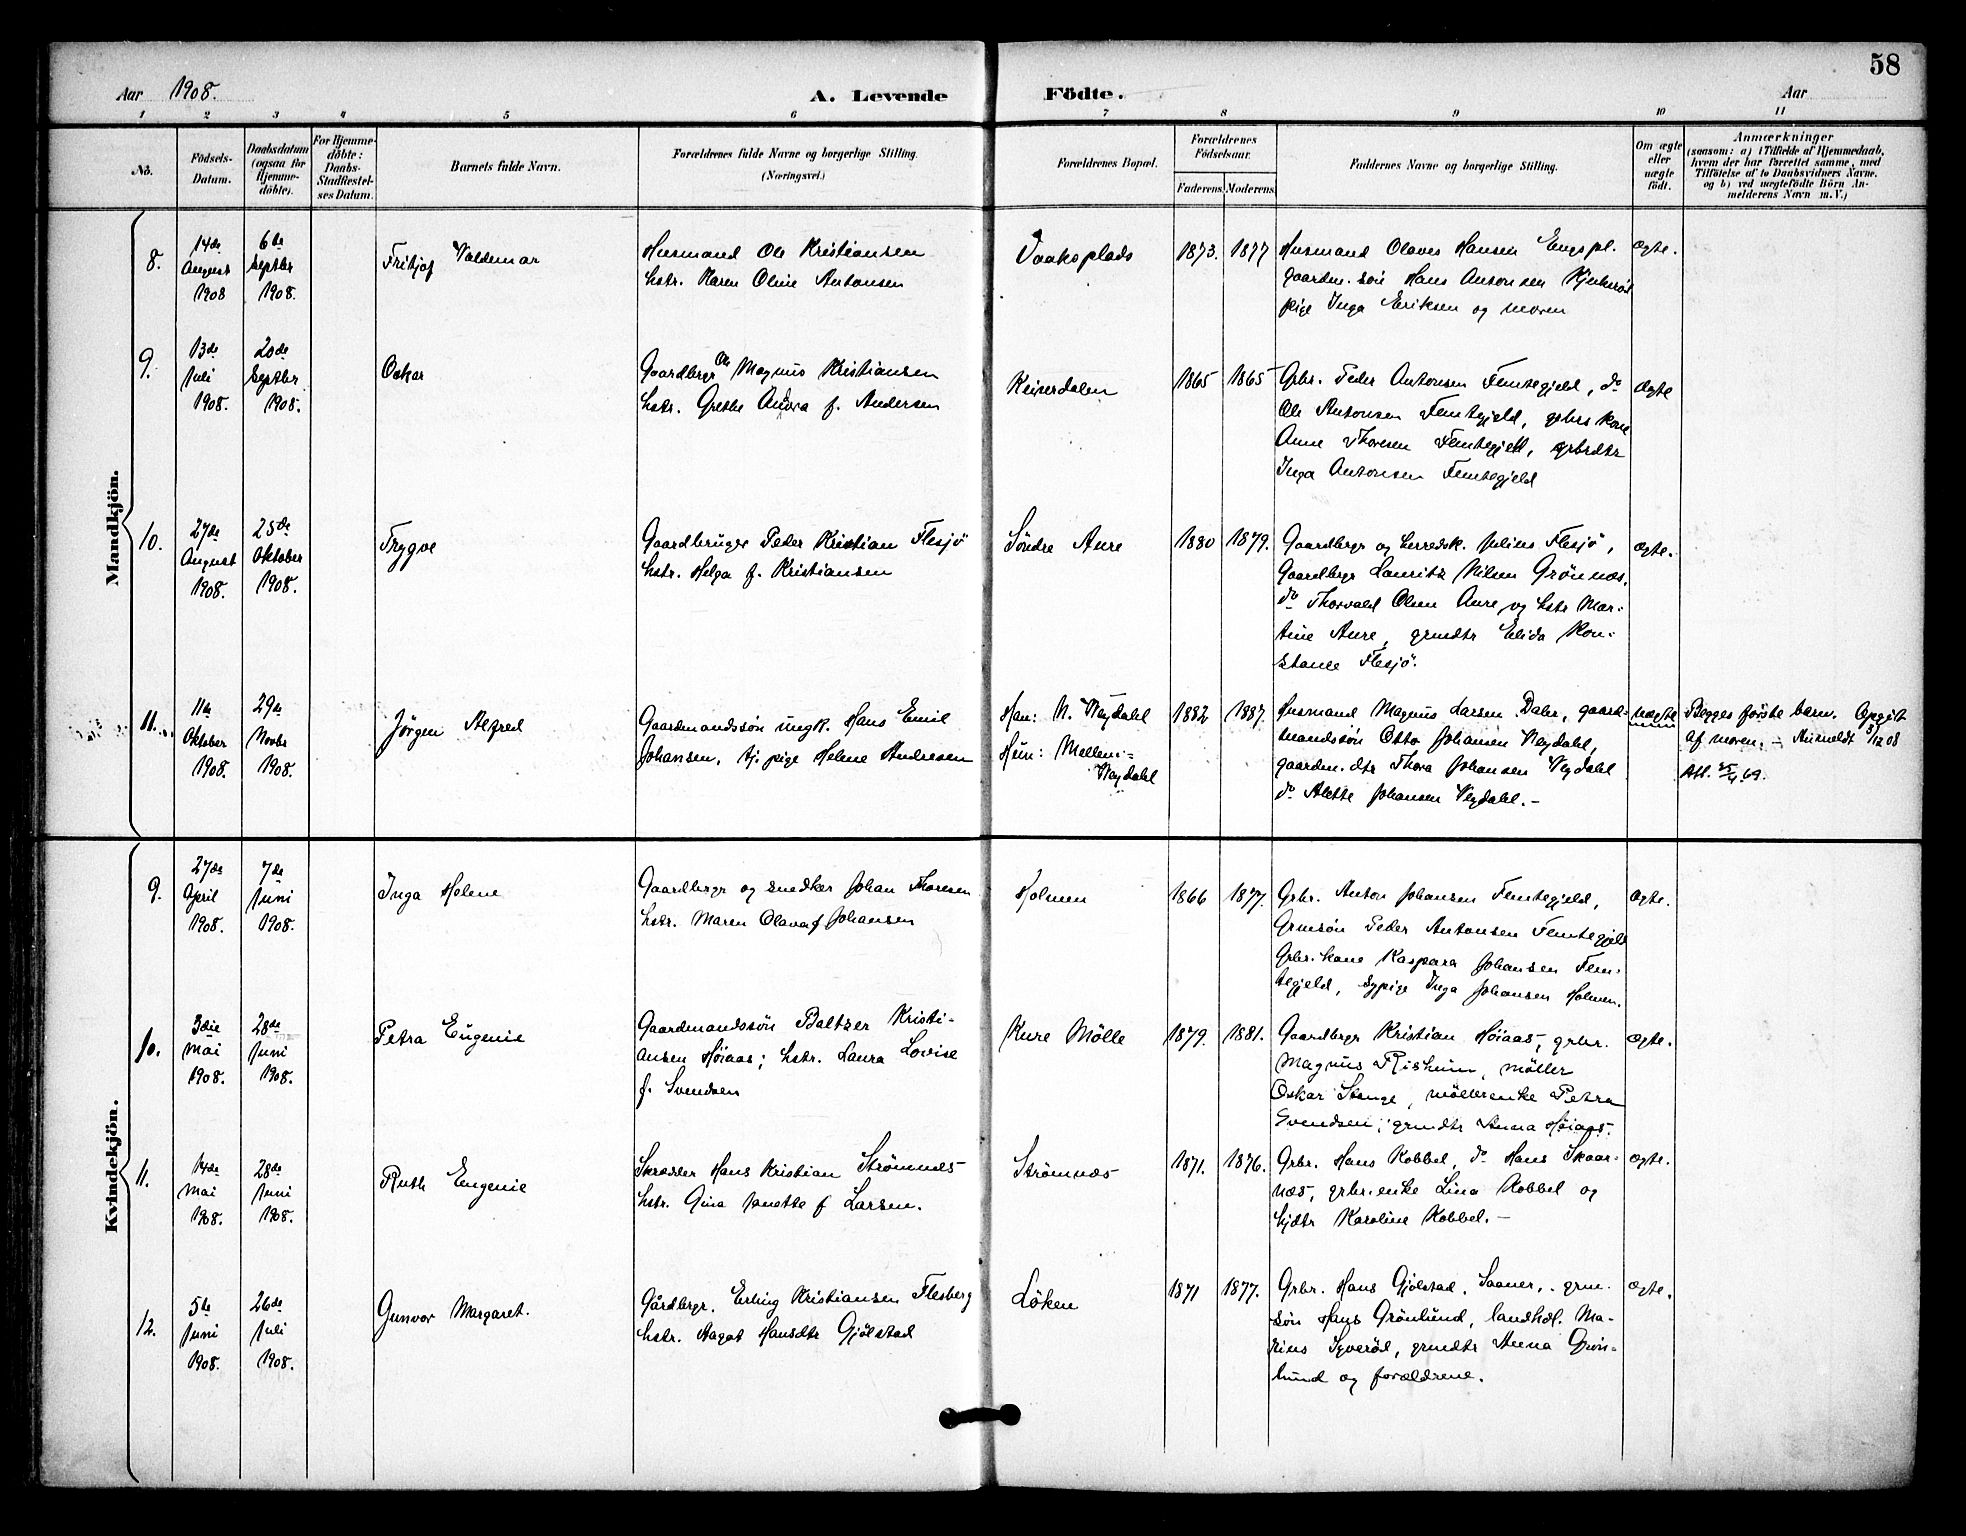 58
Aar 1908.
A. Levende Födte.
Aar
1 2 3 4 5 6 7 8 9 10 11
No.
Födsels-Datum.
Daabsdatum (ogsaa for Hjemme-döbte).
For Hjemme-döbte: Daabs-Stadfæstel-ses Datum.
Barnets fulde Navn.
Forældrenes fulde Navne og borgerlige Stilling.
(Næringsvei.)
Forældrenes Bopæl.
Forældrenes Födselsaar.
Faderens. Moderens.
Faddernes Navne og borgerlige Stilling.
Om ægte eller uægte födt.
Anmærkninger
(saasom: a) i Tilfælde af Hjemmedaab,
hvem der har forrettet samme, med
Tilföielse af to Daabsvidners Navne.
og b) ved uægtefödte Börn An-
melderens Navn m.V.)
Mandkjön.
8.
14de August 1908
6te Septbr 1908.
Fritjof Valdemar
Husmand Ole Kristiansen
hstr. Karen Oline Antonsen
Vaakoplads
1873. 1877
Husmand Olaves Hansen Engspl.
gaardm. sön Hans Antonsen
pige Inga Eriksen og moren
ægte.
9.
13de Juli 1908.
20de Septbr 1908.
Oskar
Gaardbrgr Ole Magnus Kristiansen
hstr. Grethe Andrea f. Andersen
Keiserdalen
1865 1865
Grbr. Peder Antonsen Femtegjeld, do
Ole Antonsen Femtegjeld, grbrs kone
Anne Thoresen Femtegjeld, grbrdtr
Inga Antonsen Femtegjeld
ægte
10.
27de August 1908.
25de Oktober 1908.
Trygve
Gaardbruger Peder Kristian Flesjö
hstr. Helga f. Kristiansen
Söndre Aure
1880 1879.
Gaardbrgr og herredsk. Julius Flesjö,
Gaardbrgr Lauritz Nilsen Grönnæs,
do Thorvald Olsen Aure og hstr Mar-
tine Aure, grmdtr Elida Kon-
stance Flesjö.
ægte.
11.
11te Oktober 1908.
29de Novbr 1908.
Jörgen Alfred
Gaardmandssön ungk. Hans Emil
Johansen, tj. pige Helene Andresen
Han: N. Vegdahl
Hun: Mellem-
Vegdahl
1882 1887.
Husmand Magnus Larsen Daler, gaard-
mandssön Otto Johansen Vegdahl,
gaardm. dtr Thora Johansen Vegdahl
do Alette Johansen Vegdahl.-
uægte
Begges förste barn. Opgit
af moren. - Anmeldt 5/12 08
Att.
Kvindekjön.
9.
27de April 1908.
7de Juni 1908.
Inga Helene
Gaardbrgr og snedker Johan Thoresen
hstr. Maren Olava f Johansen
Holmen
1866 1877.
Grbr. Anton Johansen Femtegjeld,
Grmsön Peder Antonsen Femtegjeld
Grbr. kone Kaspara Johansen Fem-
tegjeld, sypige Inga Johansen Holmen.
ægte.
10.
3die Mai 1908.
28de Juni 1908.
Petra Eugenie
Gaardmandssön Baltzer Kristi-
ansen Höiaas; hstr. Laura Lovise
f. Svendsen
Kure Mölle
1879. 1881.
Gaardbrgr Kristian Höiaas, grbr.
Magnus Risheim, möller
Oskar Stange, möllerenke Petra
Svendsen, grmdtr Anna Höiaas.
ægte.
11.
14de Mai 1908.
28de Juni 1908.
Ruth Eugenie
Skrædder Hans Kristian Strömnes
hstr. Gina Janette f Larsen.
Strömnæs
1871. 1876.
Grbr. Hans Kobbel, do Hans Skaar-
næs, grbr.enke Lina Kobbel og
hjdtr Karoline Kobbel.-
ægte.
12.
5te Juni 1908.
26de Juli 1908.
Gunvor Margaret.
Gårdbrgr. Erling Kristiansen Flesberg
hstr. Aagot Hansdtr Gjölstad
Löken
1871 1877.
Grbr. Hans Gjölstad, Saaner, grm-
sön Hans Grönlund, landhdl. Ma-
rius Syveröd, grmdtr Anna Grön-
lund og forældrene.
ægte.